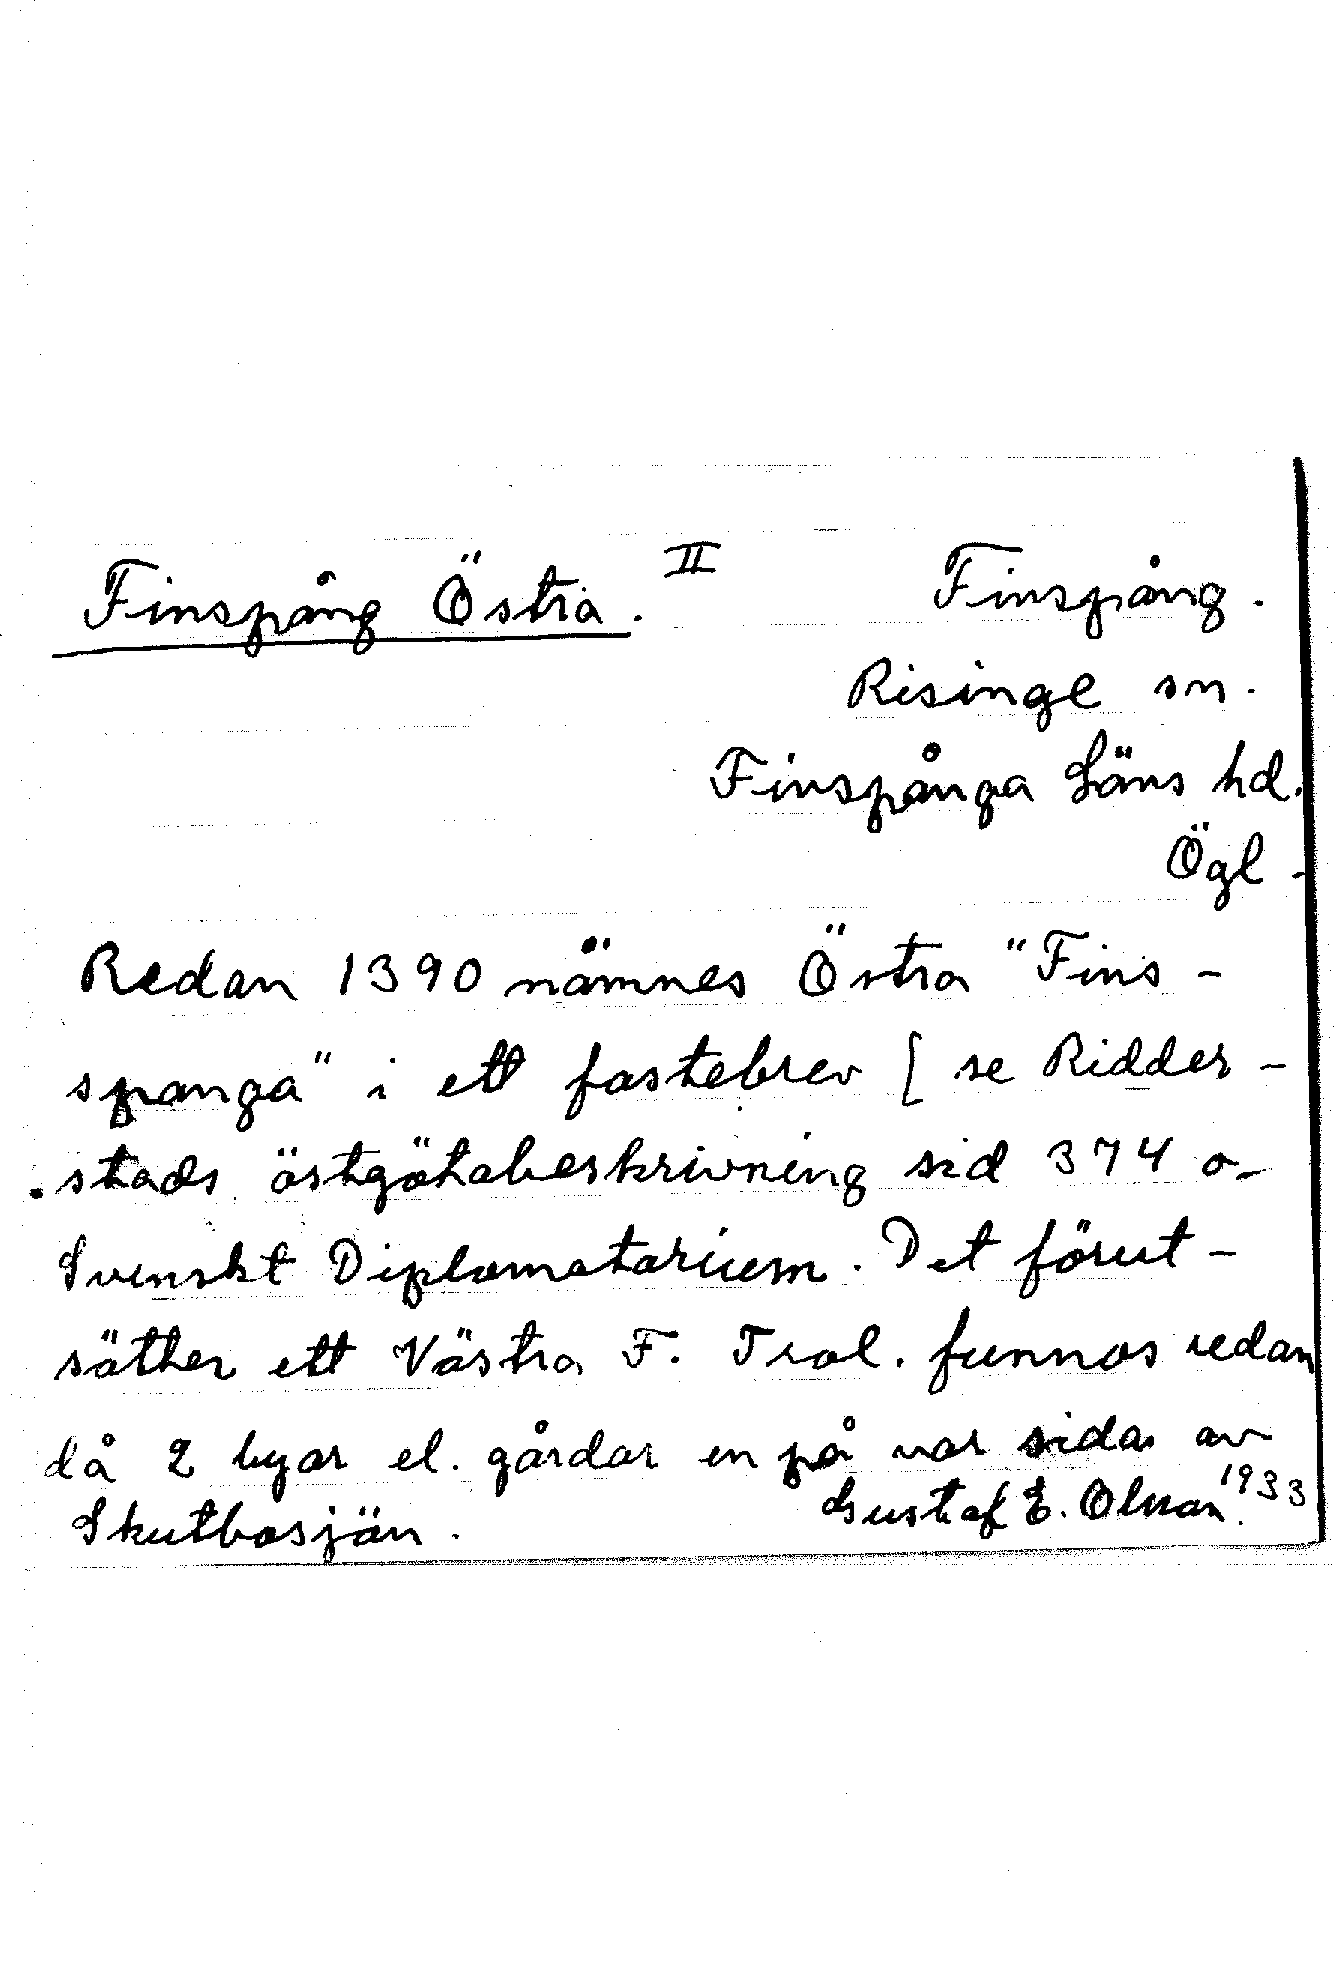 Finspång Östra. II Finspång.
Risinge sn.
Finspånga Läns hd.
Ögl.
Redan 1390 nämnes Östra "Fins-
spanga" i ett fastebrev [ se Ridder-
stads östgötabeskrivning sid 374 o.
Svenskt Diplomatarium. Det förut-
sätter ett Västra F. Trol. funnos redan
då 2 byar el. gårdar en på var sida av
Skutbosjön. Gustaf E. Olsson. 1933